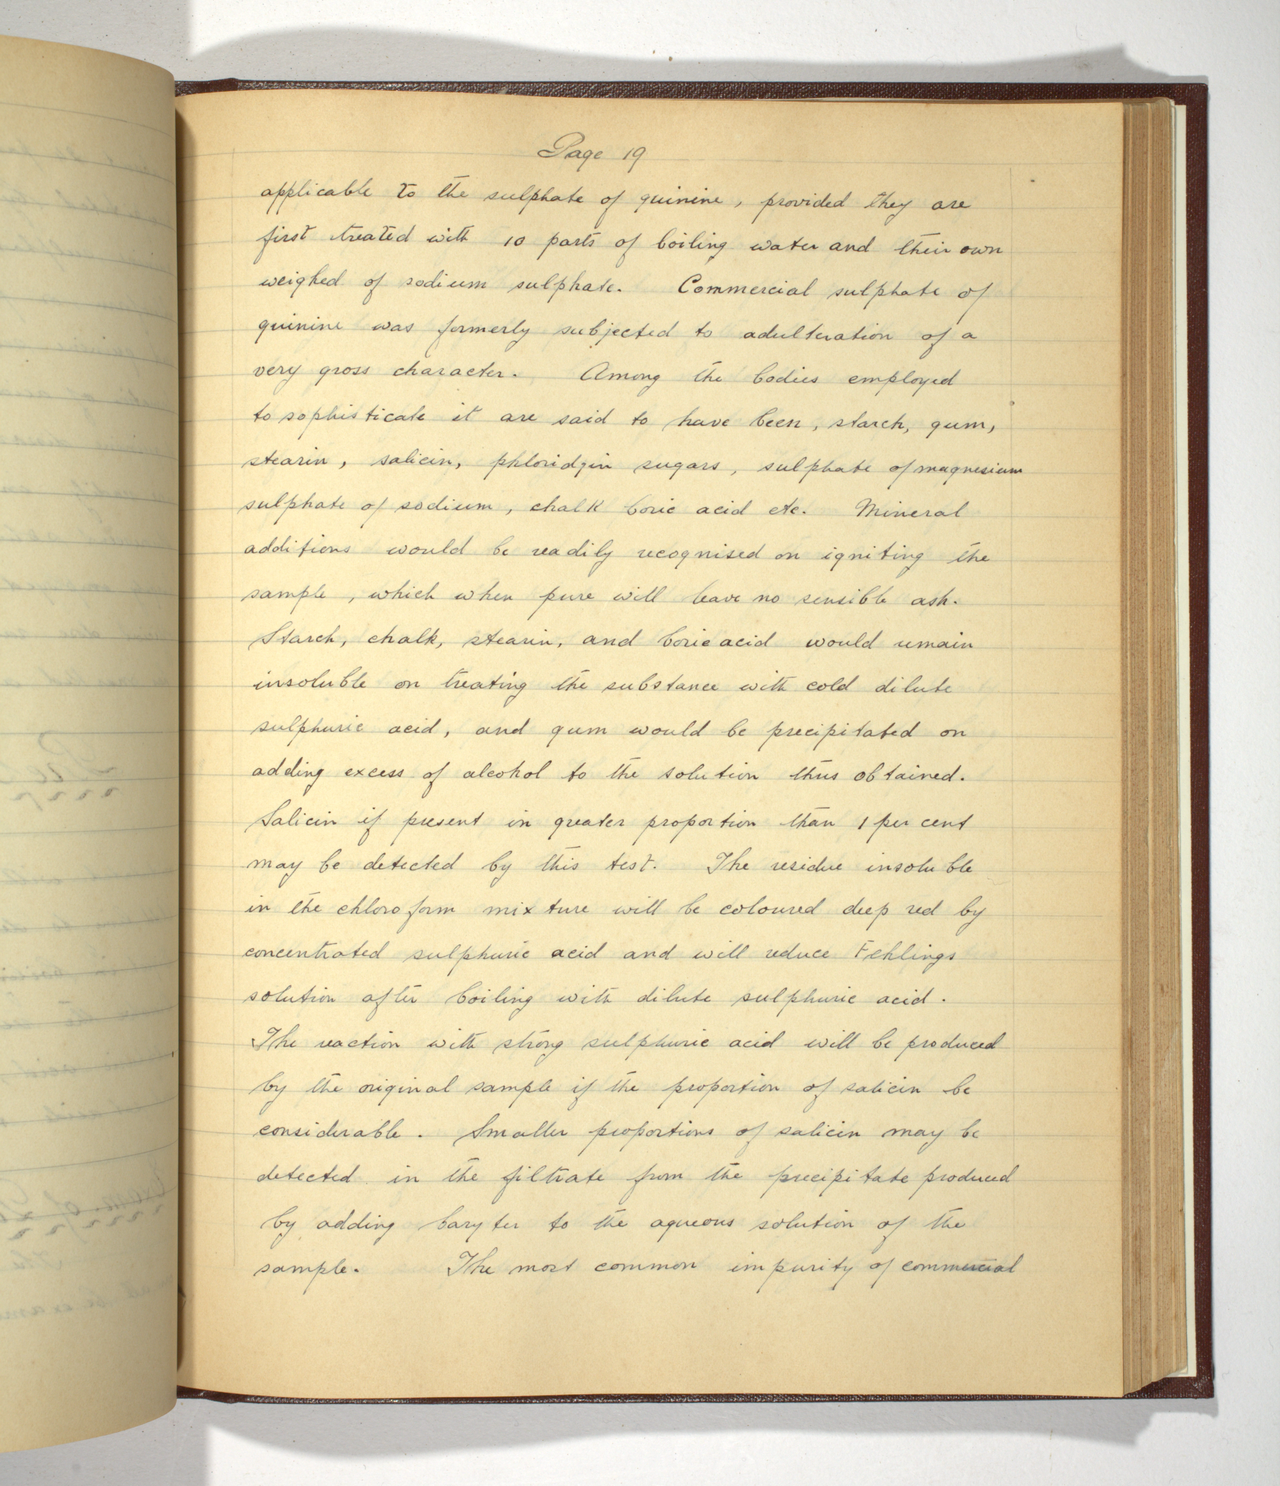 Page 19
applicable to the sulphate of quinine, provided they are
first treated with 10 parts of boiling water and their own
weighed of sodium sulphate. Commercial sulphate of
quinine was formerly subjected to adulteration of a
very gross character. Among the bodies employed
to sophisticate it are said to have been, starch, gum,
stearin, salicin, phloridzin sugars, sulphate of magnesium
sulphate of sodium, chalk boric acid etc. Mineral
additions would be readily recognised on igniting the
sample, which when pure will leave no sensible ash.
Starch, chalk, stearin, and boric acid would remain
insoluble on treating the substance with cold dilute
sulphuric acid, and gum would be precipitated on
adding excess of alcohol to the solution thus obtained.
Salicin if present in greater proportion than 1 per cent
may be detected by this test. The residue insoluble
in the chloroform mixture will be coloured deep red by
concentrated sulphuric acid and will reduce Fehlings
solution after boiling with dilute sulphuric acid.
The reaction with strong sulphuric acid will be produced
by the original sample if the proportion of salicin be
considerable. Smaller proportions of salicin may be
detected in the filtrate from the precipitate produced
by adding baryter to the aqueous solution of the
sample. The most common impurity of commercial